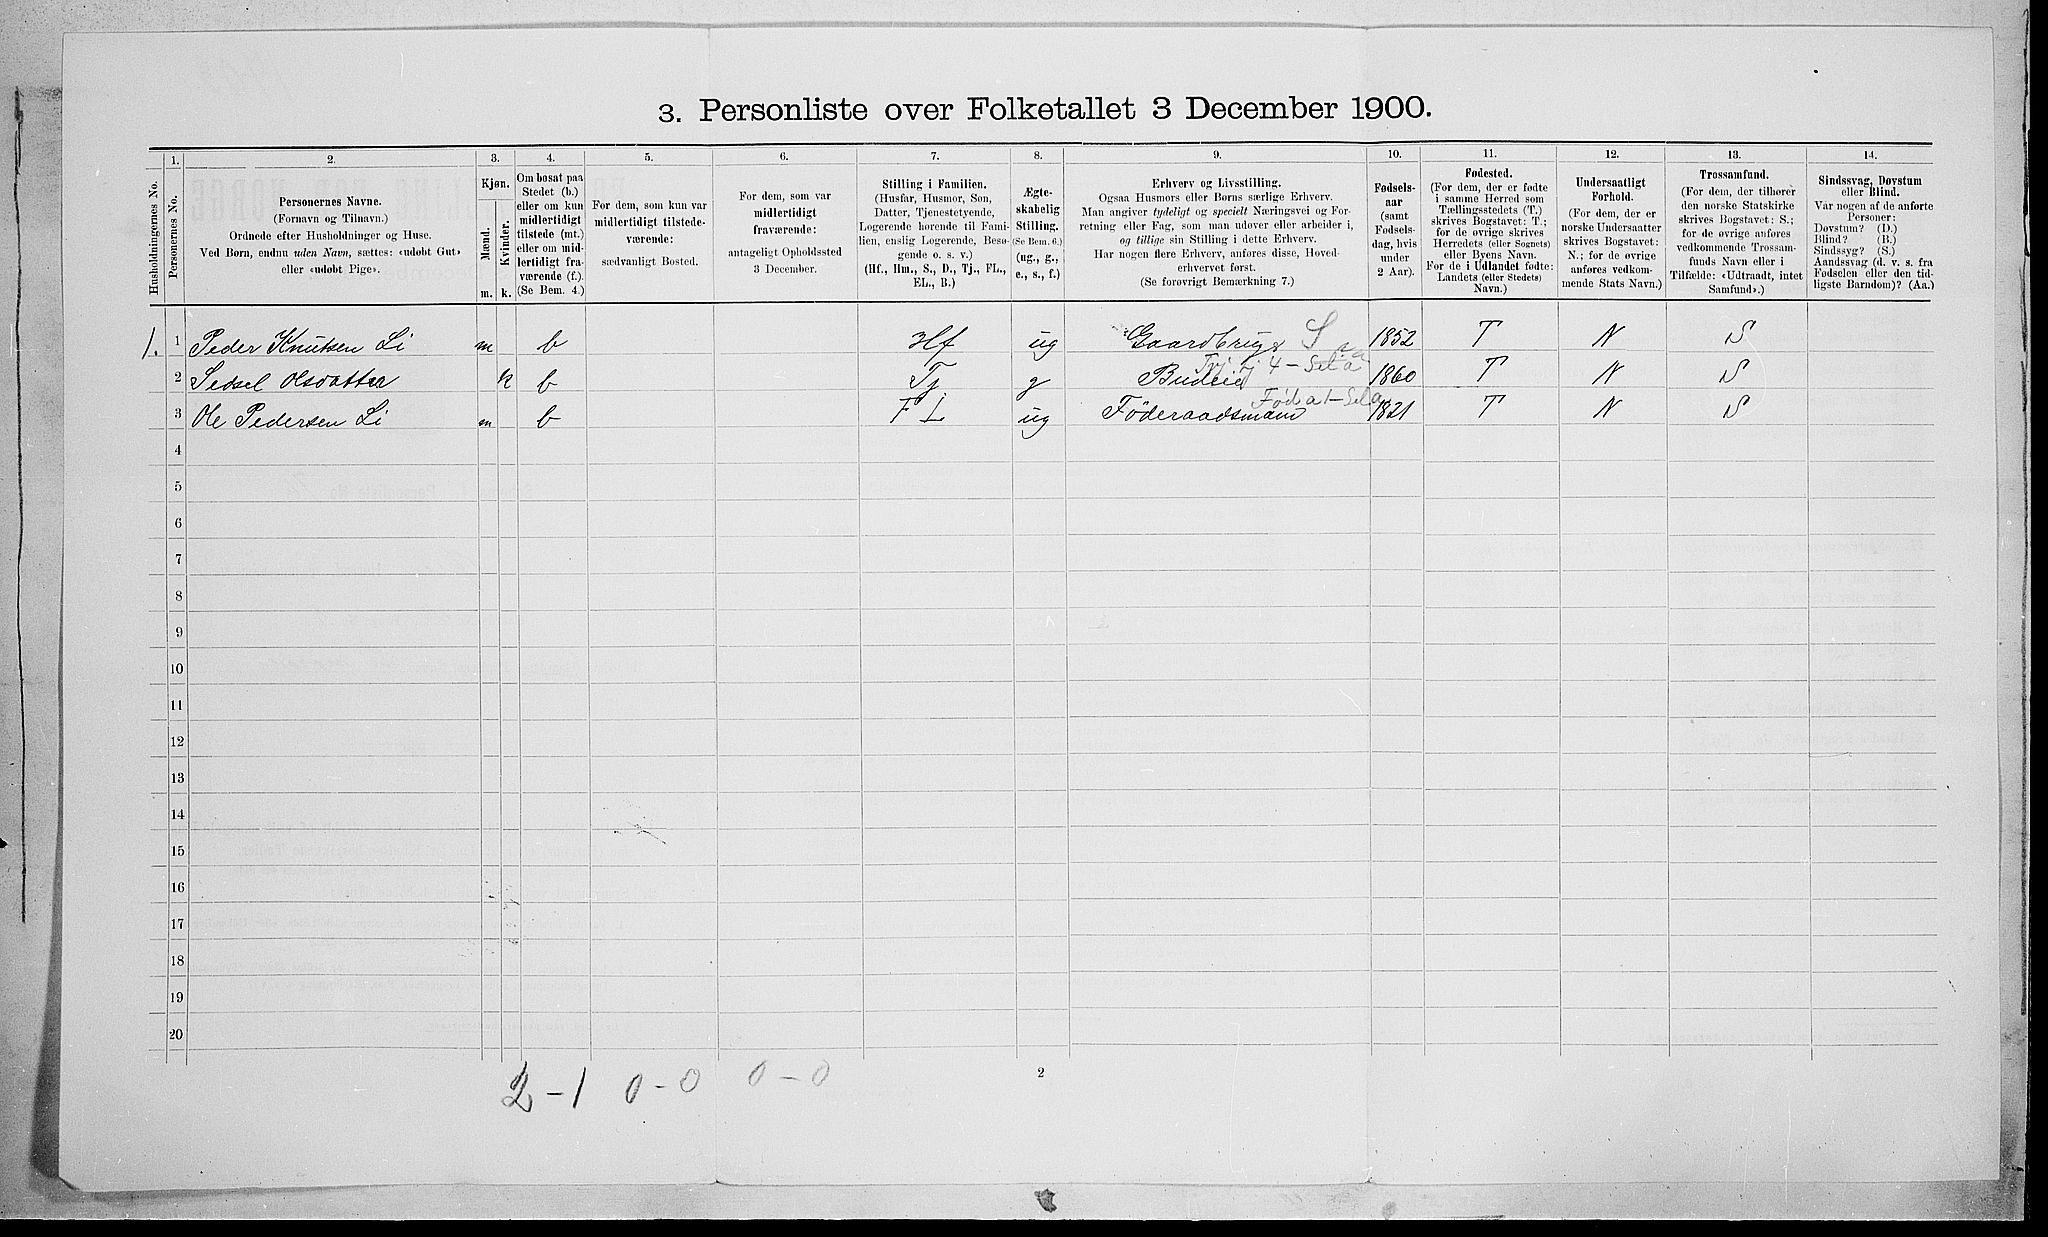 3. Personliste over Folketallet 3 December 1900.
1. 2. 3. 4. 5. 6. 7. 8. 9. 10. 11. 12. 13. 14.
Husholdningernes No.
Personernes No.
Personernes Navne.
(Fornavn og Tilnavn.)
Ordnede efter Husholdninger og Huse.
Ved Børn, endnu uden Navn, sættes: «udøbt Gut»
eller «udøbt Pige».
Kjøn.
Mænd.
Kvinder.
m. k.
Om bosat paa
Stedet (b.)
eller om kun
midlertidigt
tilstede (mt.)
eller om mid-
lertidigt fra-
værende (f.).
(Se Bem. 4.)
For dem, som kun var
midlertidigt tilstede-
værende:
sædvanligt Bosted.
For dem, som var
midlertidigt
fraværende:
antageligt Opholdssted
3 December.
Stilling i Familien.
(Husfar, Husmor, Søn,
Datter, Tjenestetyende,
Logerende hørende til Fami-
lien, enslig Logerende, Besø-
gende o. s. v.)
(Hf., Hm., S., D., Tj., FL.,
EL., B.)
Ægte-
skabelig
Stilling.
(Se Bem. 6.)
(ug., g.,
e., s., f.)
Erhverv og Livsstilling.
Ogsaa Husmors eller Børns særlige Erhverv.
Man angiver tydeligt og specielt Næringsvei og For-
retning eller Fag, som man udøver eller arbeider i,
og tillige sin Stilling i dette Erhverv.
Har nogen flere Erhverv, anføres disse, Hoved-
erhvervet først.
(Se forøvrigt Bemærkning 7.)
Fødsels-
aar
(samt
Fødsels-
dag, hvis
under
2 Aar).
Fødested.
(For dem, der er fødte
i samme Herred som
Tællingsstedets (T.)
skrives Bogstavet: T.;
for de øvrige skrives
Herredets (eller Sognets)
eller Byens Navn.
For de i Udlandet fødte:
Landets (eller Stedets)
Navn.)
Undersaatligt
Forhold.
(For dem, der er
norske Undersaatter
skrives Bogstavet:
N.; for de øvrige
anføres vedkom-
mende Stats Navn.)
Trossamfund.
(For dem, der tilhører
den norske Statskirke
skrives Bogstavet: S.;
for de øvrige anføres
vedkommende Trossam-
funds Navn eller i
Tilfælde: «Udtraadt, intet
Samfund».)
Sindssvag, Døvstum
eller Blind.
Var nogen af de anførte
Personer:
Døvstum? (D.)
Blind? (B.)
Sindssyg? (S.)
Aandssvag (d. v. s. fra
Fødselen eller den tid-
ligste Barndom)? (Aa.)
1. 1 Peder Knutsen Li m b Hf ug Gaardbruger S 1852 T N S
2 Sidsel Olsdatter k b Tj g Budeie 1860 T N S
3 Ole Pedersen Li m b FL ug Föderaadsmand 1821 T N S
4
5
6
7
8
9
10
11
12
13
14
15
16
17
18
19
20
2-1 0-0 0-0
2